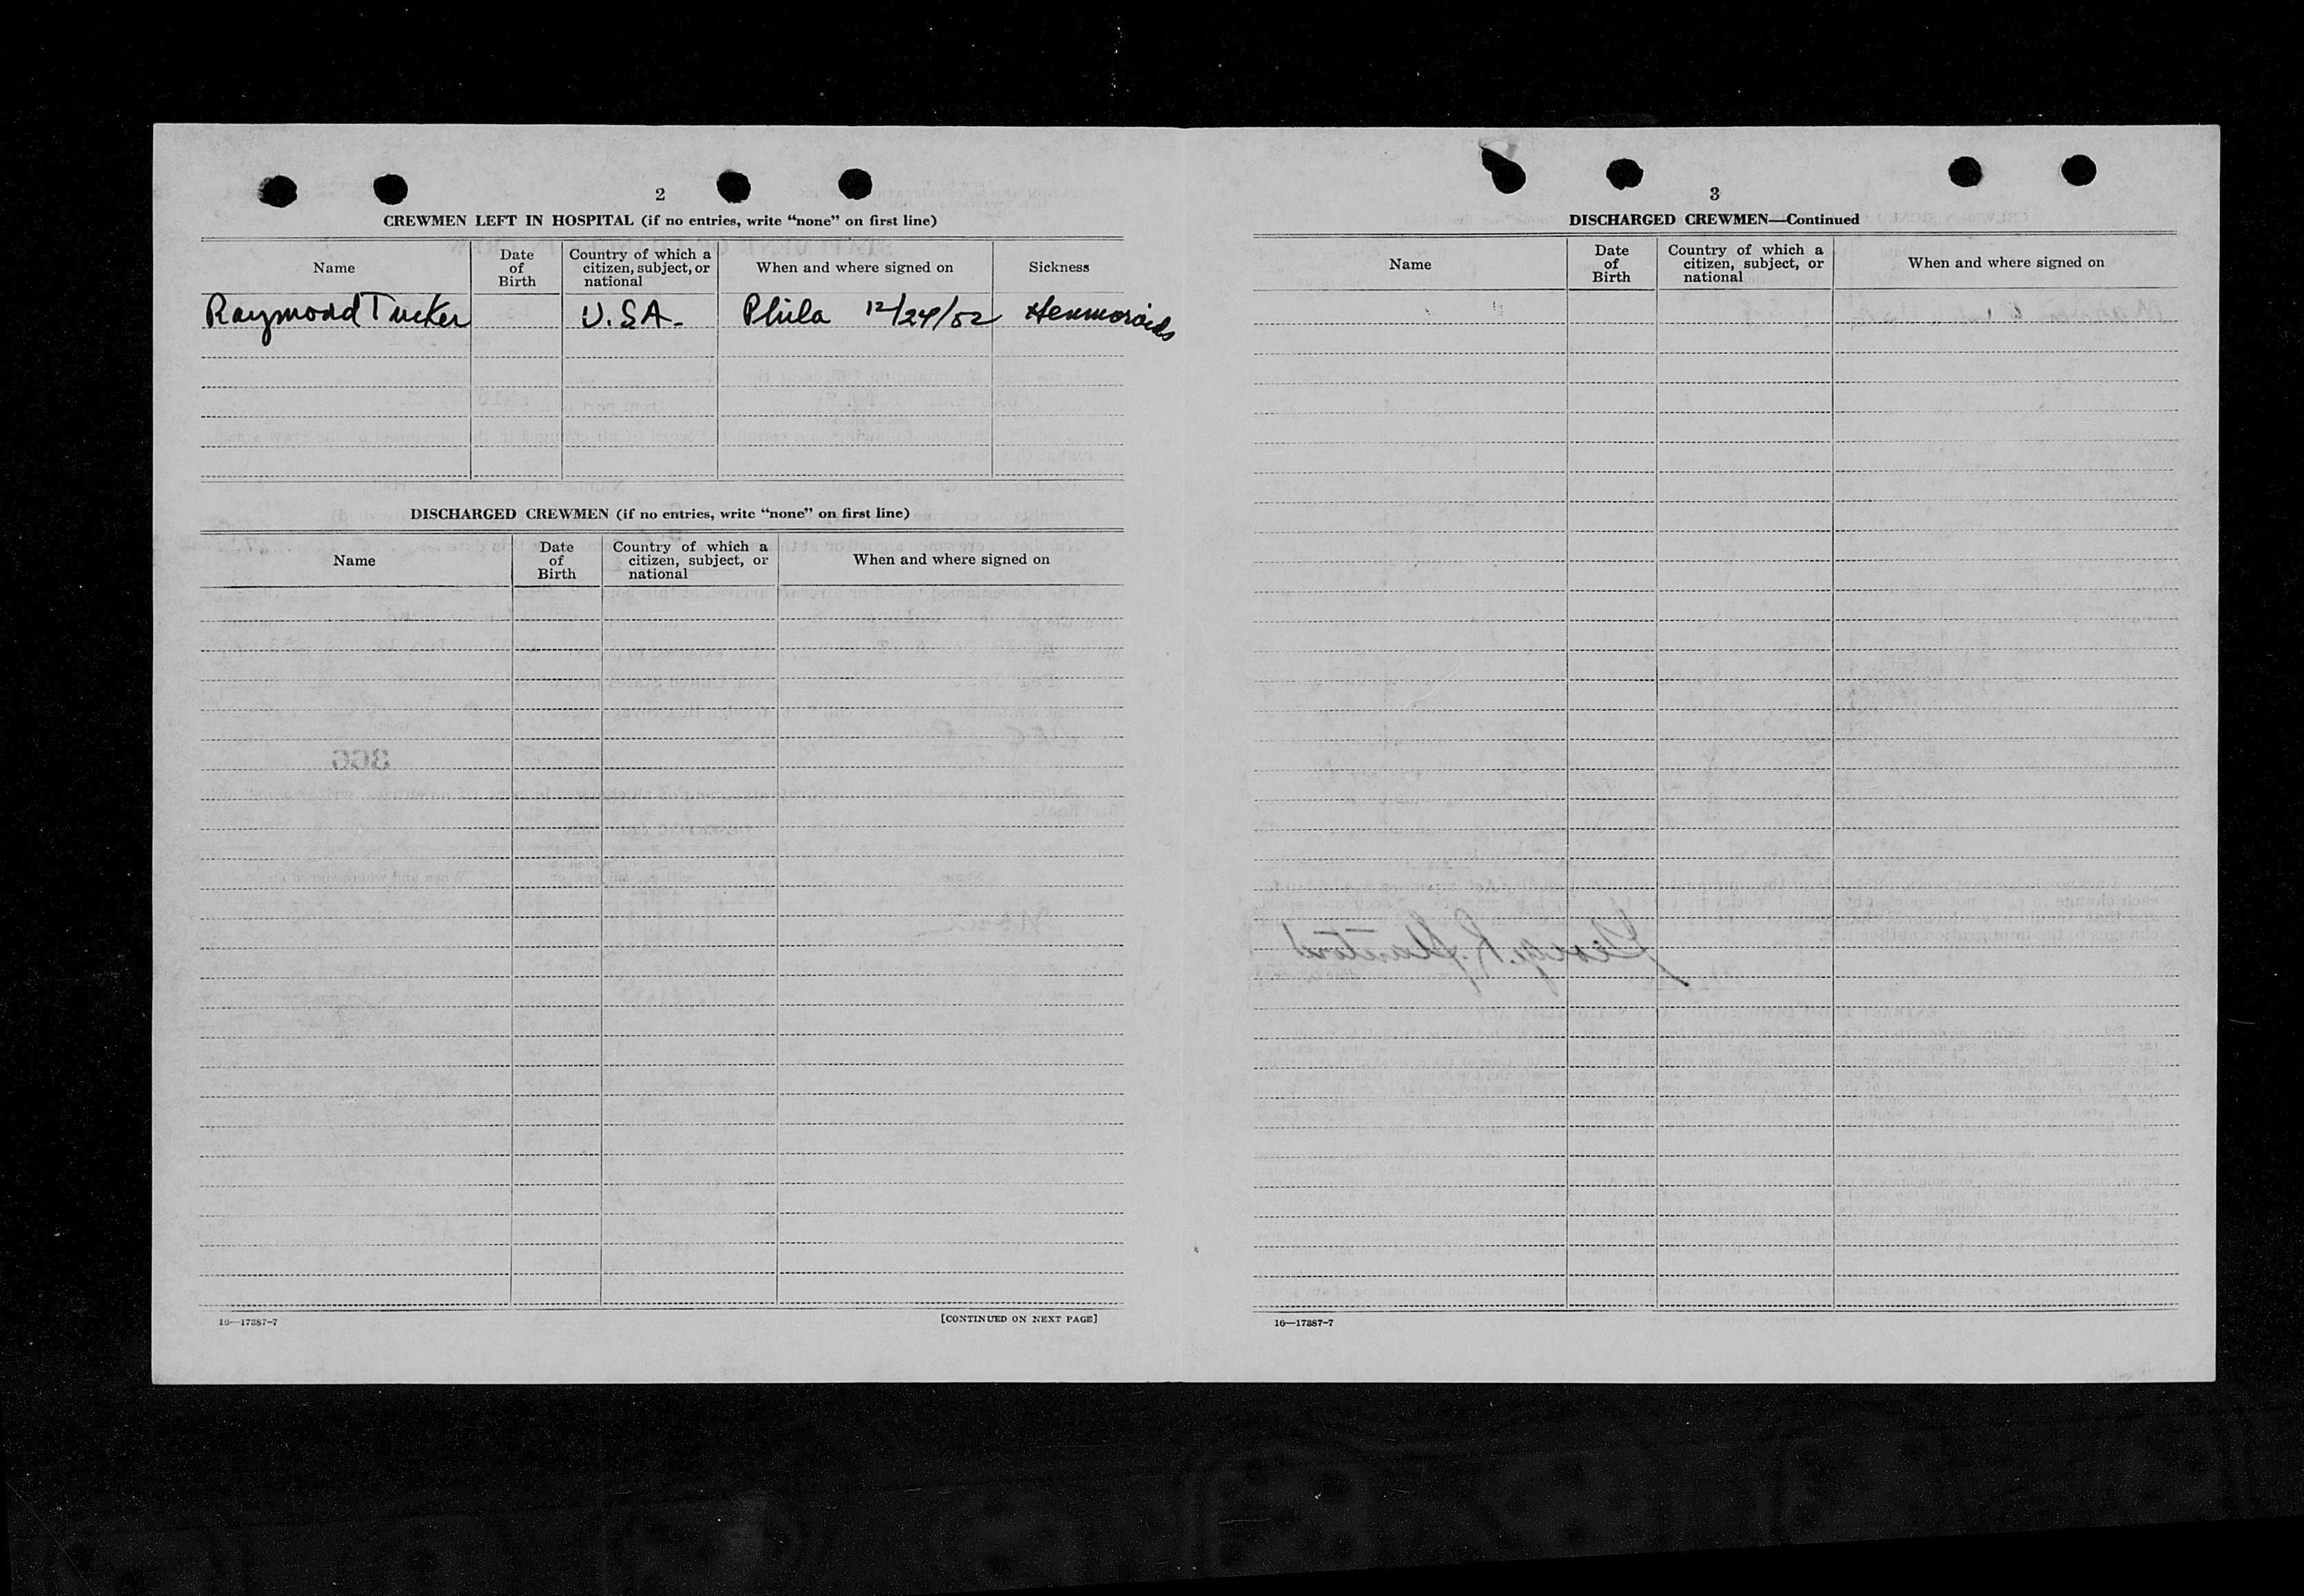 2
CREWMEN LEFT IN HOSPITAL (if no entries, write “none” on first line)
Name
Date of Birth
Country of which a citizen, subject, or national
When and where signed on
Sickness
Raymond Tucker
U.S.A.
Phila 12/24/52
Hemmoroids
DISCHARGED CREWMEN (if no entries, write “none” on first line)
Name
Date of Birth
Country of which a citizen, subject, or national
When and where signed on
16—17387-7
[CONTINUED ON NEXT PAGE]
3
DISCHARGED CREWMEN—Continued
Name
Date of Birth
Country of which a citizen, subject, or national
When and where signed on
16—17387-7